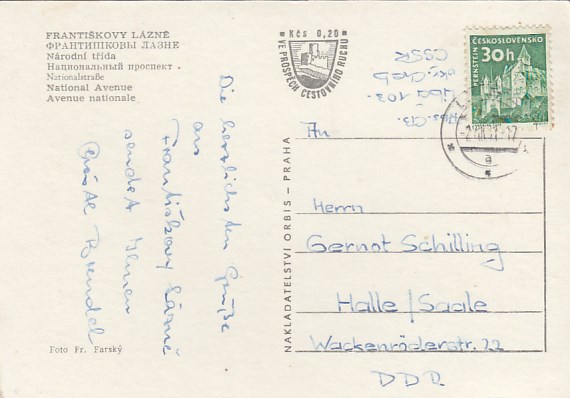 FRANTIŠKOVY LÁZNĚ
ФРАНТИШКОВЫ ЛАЗНЕ
Národní třída
Национальный проспект
Nationalstraße
National Avenue
Avenue nationale
Die herzlichsten Grüße
aus
Františkovy Lázně
sendet Ihnen
Brendel
Foto Fr. Farský
Kčs 0,20
VE PROSPĚCH CESTOVNÍHO RUCHU
NAKLADATELSTVÍ ORBIS – PRAHA
Libá 103
okr. Cheb
ČSSR
ČESKOSLOVENSKO
30h
PERNŠTEJN
An
Herrn
Gernot Schilling
Halle/Saale
Wackenröderstr. 22
DDR